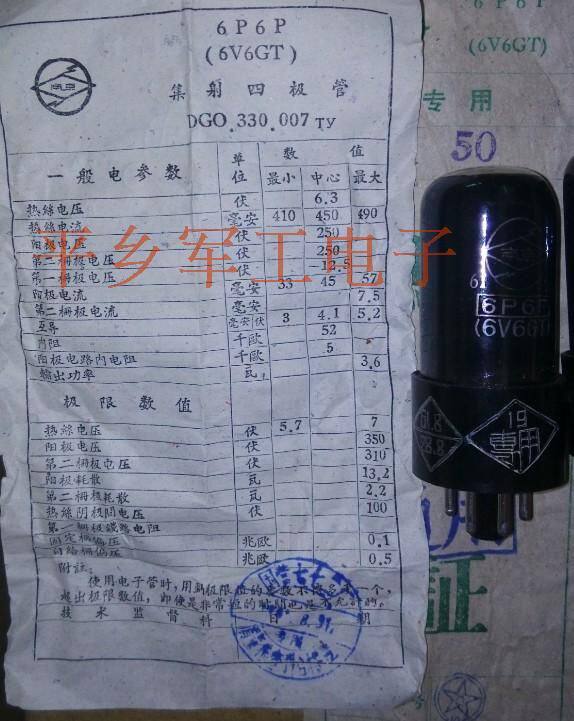 6P6P
(6V6GT)
集射四极管
DGO.330.007 ТУ
一般电参数 单位 数值
最小 中心 最大
热絲电压 伏 6.3
热絲电流 毫安 410 450 490
阳极电压 伏 250
第二栅极电压 伏 250
第一栅极电压 伏 12.5
阳极电流 毫安 33 45 57
第二栅极电流 毫安 7.5
互导 毫安/伏 3 4.1 5.2
内阻 千欧 52
阳极电路内电阻 千欧 5
输出功率 瓦 3.6
极限数值
热絲电压 伏 5.7 7
阳极电压 伏 350
第二栅极电压 伏 310
阳极耗散 瓦 13.2
第二栅极耗散 瓦 2.2
热絲阴极间电压 伏 100
第一栅极线路电阻
固定栅偏压 兆欧 0.1
自给栅偏压 兆欧 0.5
附註:
使用电子管时,用到极限值的参数不得多于一个,
超出极限数值,即使是非常短的时间也是不允许的。
技术监督科 日期
8.91.
乡军工电子
6P6P
(6V6GT)
专用
50
6P6P
(6V6GT)
61.8
19
專用
证
号